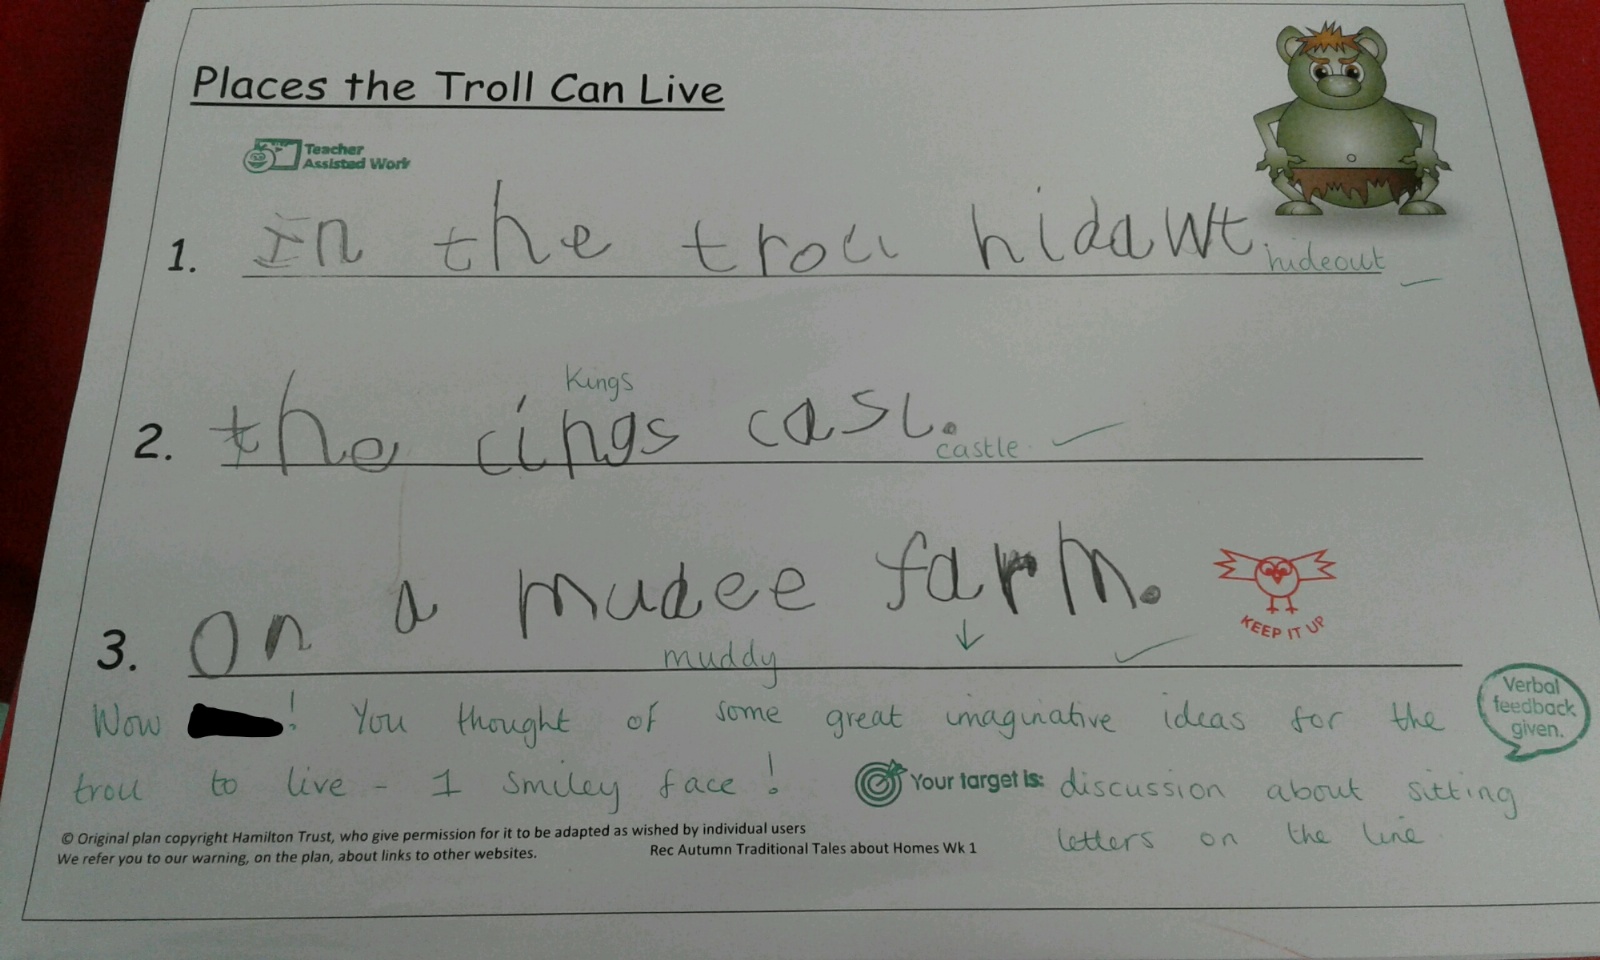 Places the Troll Can Live
Teacher
Assisted Work
1. In the troll hidawt. hideout
Kings
2. the cings casl. castle
3. on a mudee farm.
muddy
KEEP IT UP
Wow ! You thought of some great imaginative ideas for the
troll to live - 1 smiley face!
Verbal
feedback
given.
Your target is: discussion about sitting
letters on the line
© Original plan copyright Hamilton Trust, who give permission for it to be adapted as wished by individual users
We refer you to our warning, on the plan, about links to other websites. Rec Autumn Traditional Tales about Homes Wk 1